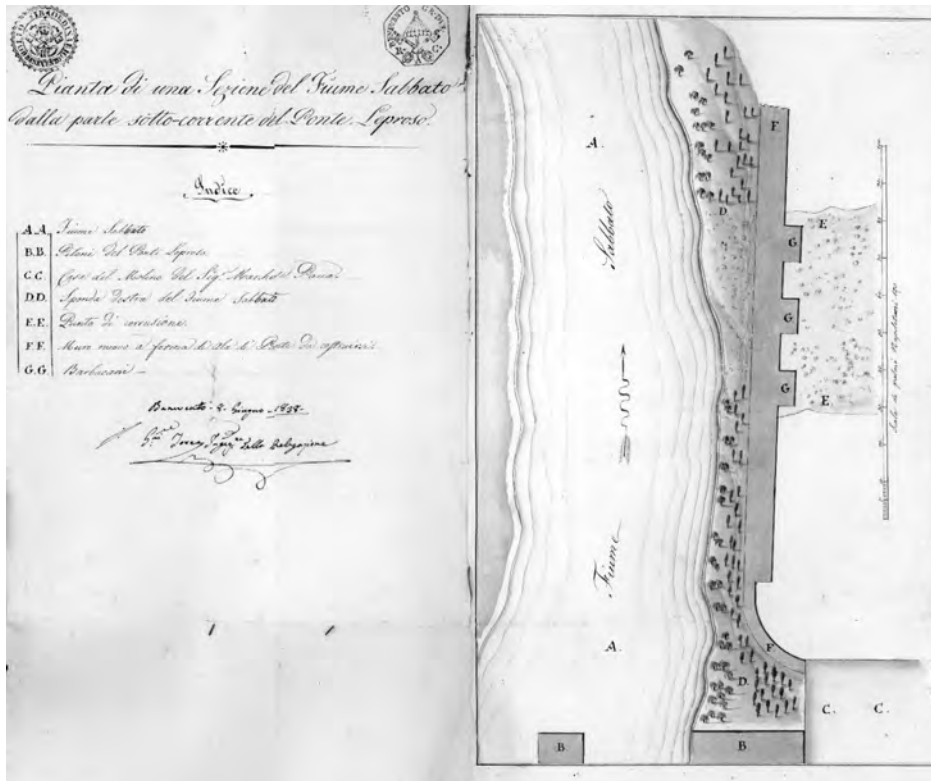 Pianta di una Sezione del Fiume Sabbato
dalla parte sotto-corrente del Ponte Leproso.
Indice.
A.A. Fiume Sabbato
B.B. Piloni del Ponte Leproso.
C.C. Casa del Molino del Sig.r Marchese
D.D. Sponda destra del Fiume Sabbato
E.E. Punta di corrosione.
F.F. Muro nuovo a forma di ala di Ponte da costruirsi
G.G. Barbacani
Benevento Giugno
A.
Sabbato
Fiume
A.
B
B
D
D
F
F
G
G
G
E
E
C. C.
Scala di palmi Napolitani